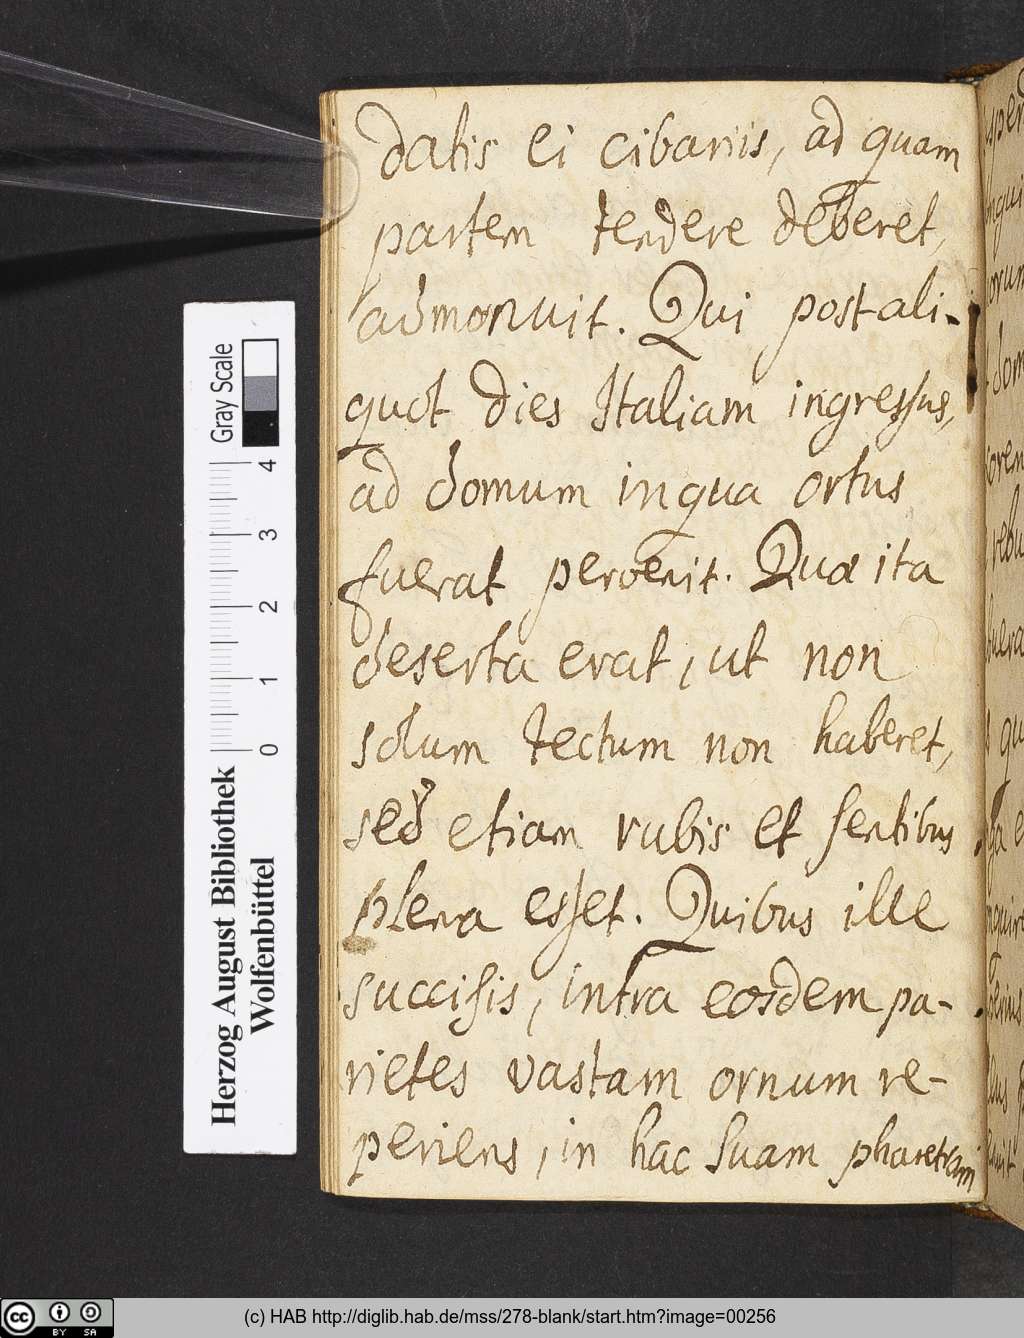 datis ei cibariis, ad quam
partem tendere deberet,
admonuit. Qui post ali-
quot dies Italiam ingressus,
ad domum in qua ortus
fuerat pervenit. Quæ ita
deserta erat, ut non
solum tectum non haberet,
sed etiam rubis et sentibus
plena esset. Quibus ille
succisis, intra eosdem pa-
rietes vastam ornum re-
periens, in hac suam pharetram
Gray Scale
4
3
2
1
0
Herzog August Bibliothek
Wolfenbüttel
cc
BY SA
(c) HAB http://diglib.hab.de/mss/278-blank/start.htm?image=00256